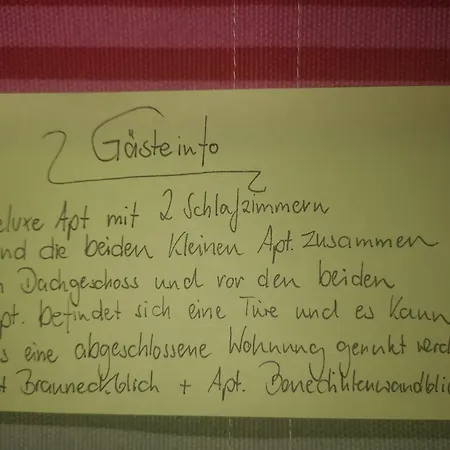 Gästeinfo
eluxe Apt mit 2 Schlafzimmern
nd die beiden kleinen Apt. zusammen
Dachgeschoss und vor den beiden
pt. befindet sich eine Türe und es kann
s eine abgeschlossene Wohnung genutzt werd
t Brauneckblich + Apt. Benediktenwandblic